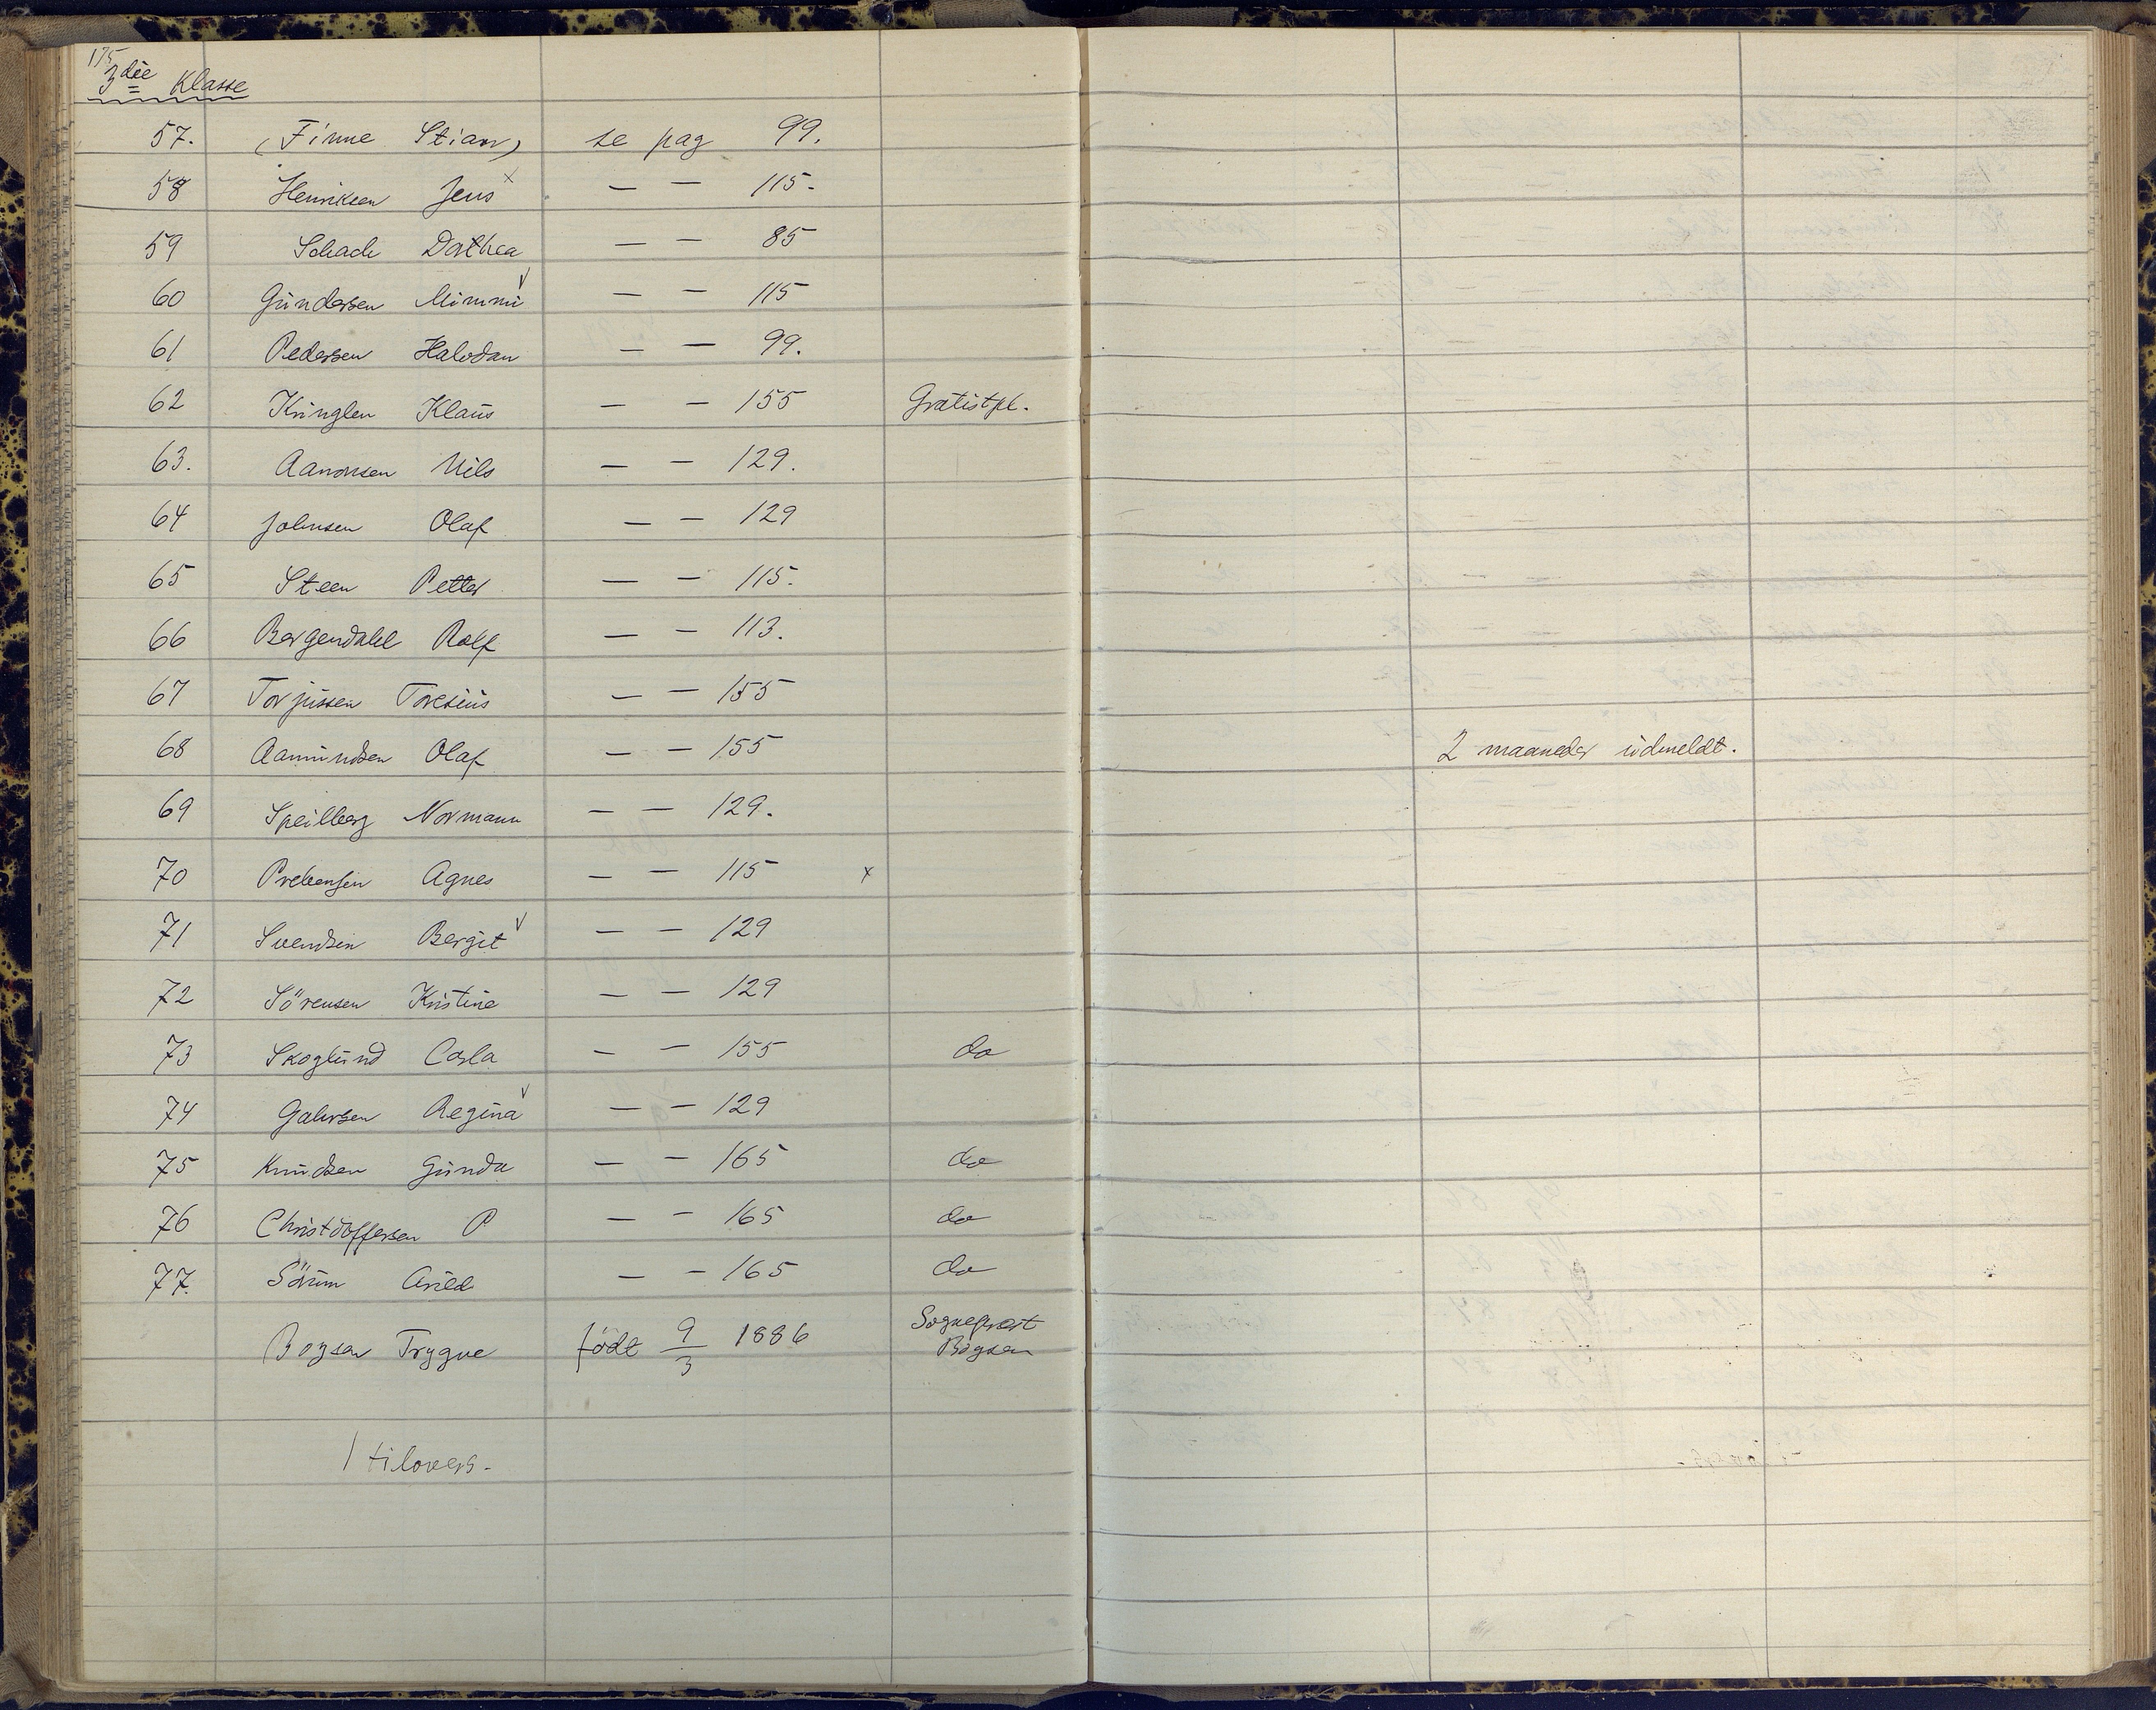 175
3die Klasse
57. (Finne Stian) se pag 99.
58 Henriksen Jens x — — 115.
59 Schach Dorthea — — 85
60 Gundersen Mimmi v — — 115
61 Pedersen Halvdan — — 99.
62 Kringlen Klaus — — 155 Gratistpl.
63. Aanonsen Nils — — 129.
64 Johnsen Olaf — — 129
65 Steen Petter — — 115.
66 Bergendahl Rolf — — 113.
67 Torjussen Toresius — — 155
68 Aamundsen Olaf — — 155 2 maaneder udmeldt.
69 Speilberg Normann — — 129.
70 Prebensen Agnes — — 115 x
71 Svendsen Bergit v — — 129
72 Sörensen Kristine — — 129
73 Skoglund Carla — — 155 do
74 Regina v — — 129
75 Knudsen Gunda — — 165 do
76 Christoffersen P — — 165 do
77. Sörum Arild — — 165 do
Boysen Trygve födt 9/3 1886 Sogneprest
Boysen
1 tilovers.